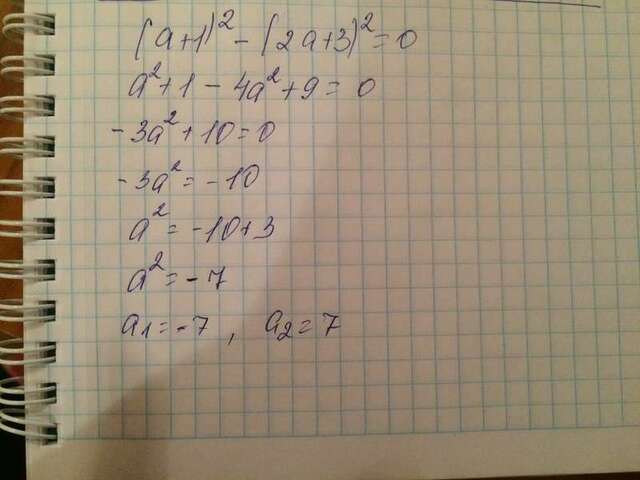 (a+1)² - (2a+3)² = 0
a² + 1 - 4a² + 9 = 0
-3a² + 10 = 0
-3a² = -10
a² = -10+3
a² = -7
a₁ = -7 , a₂ = 7